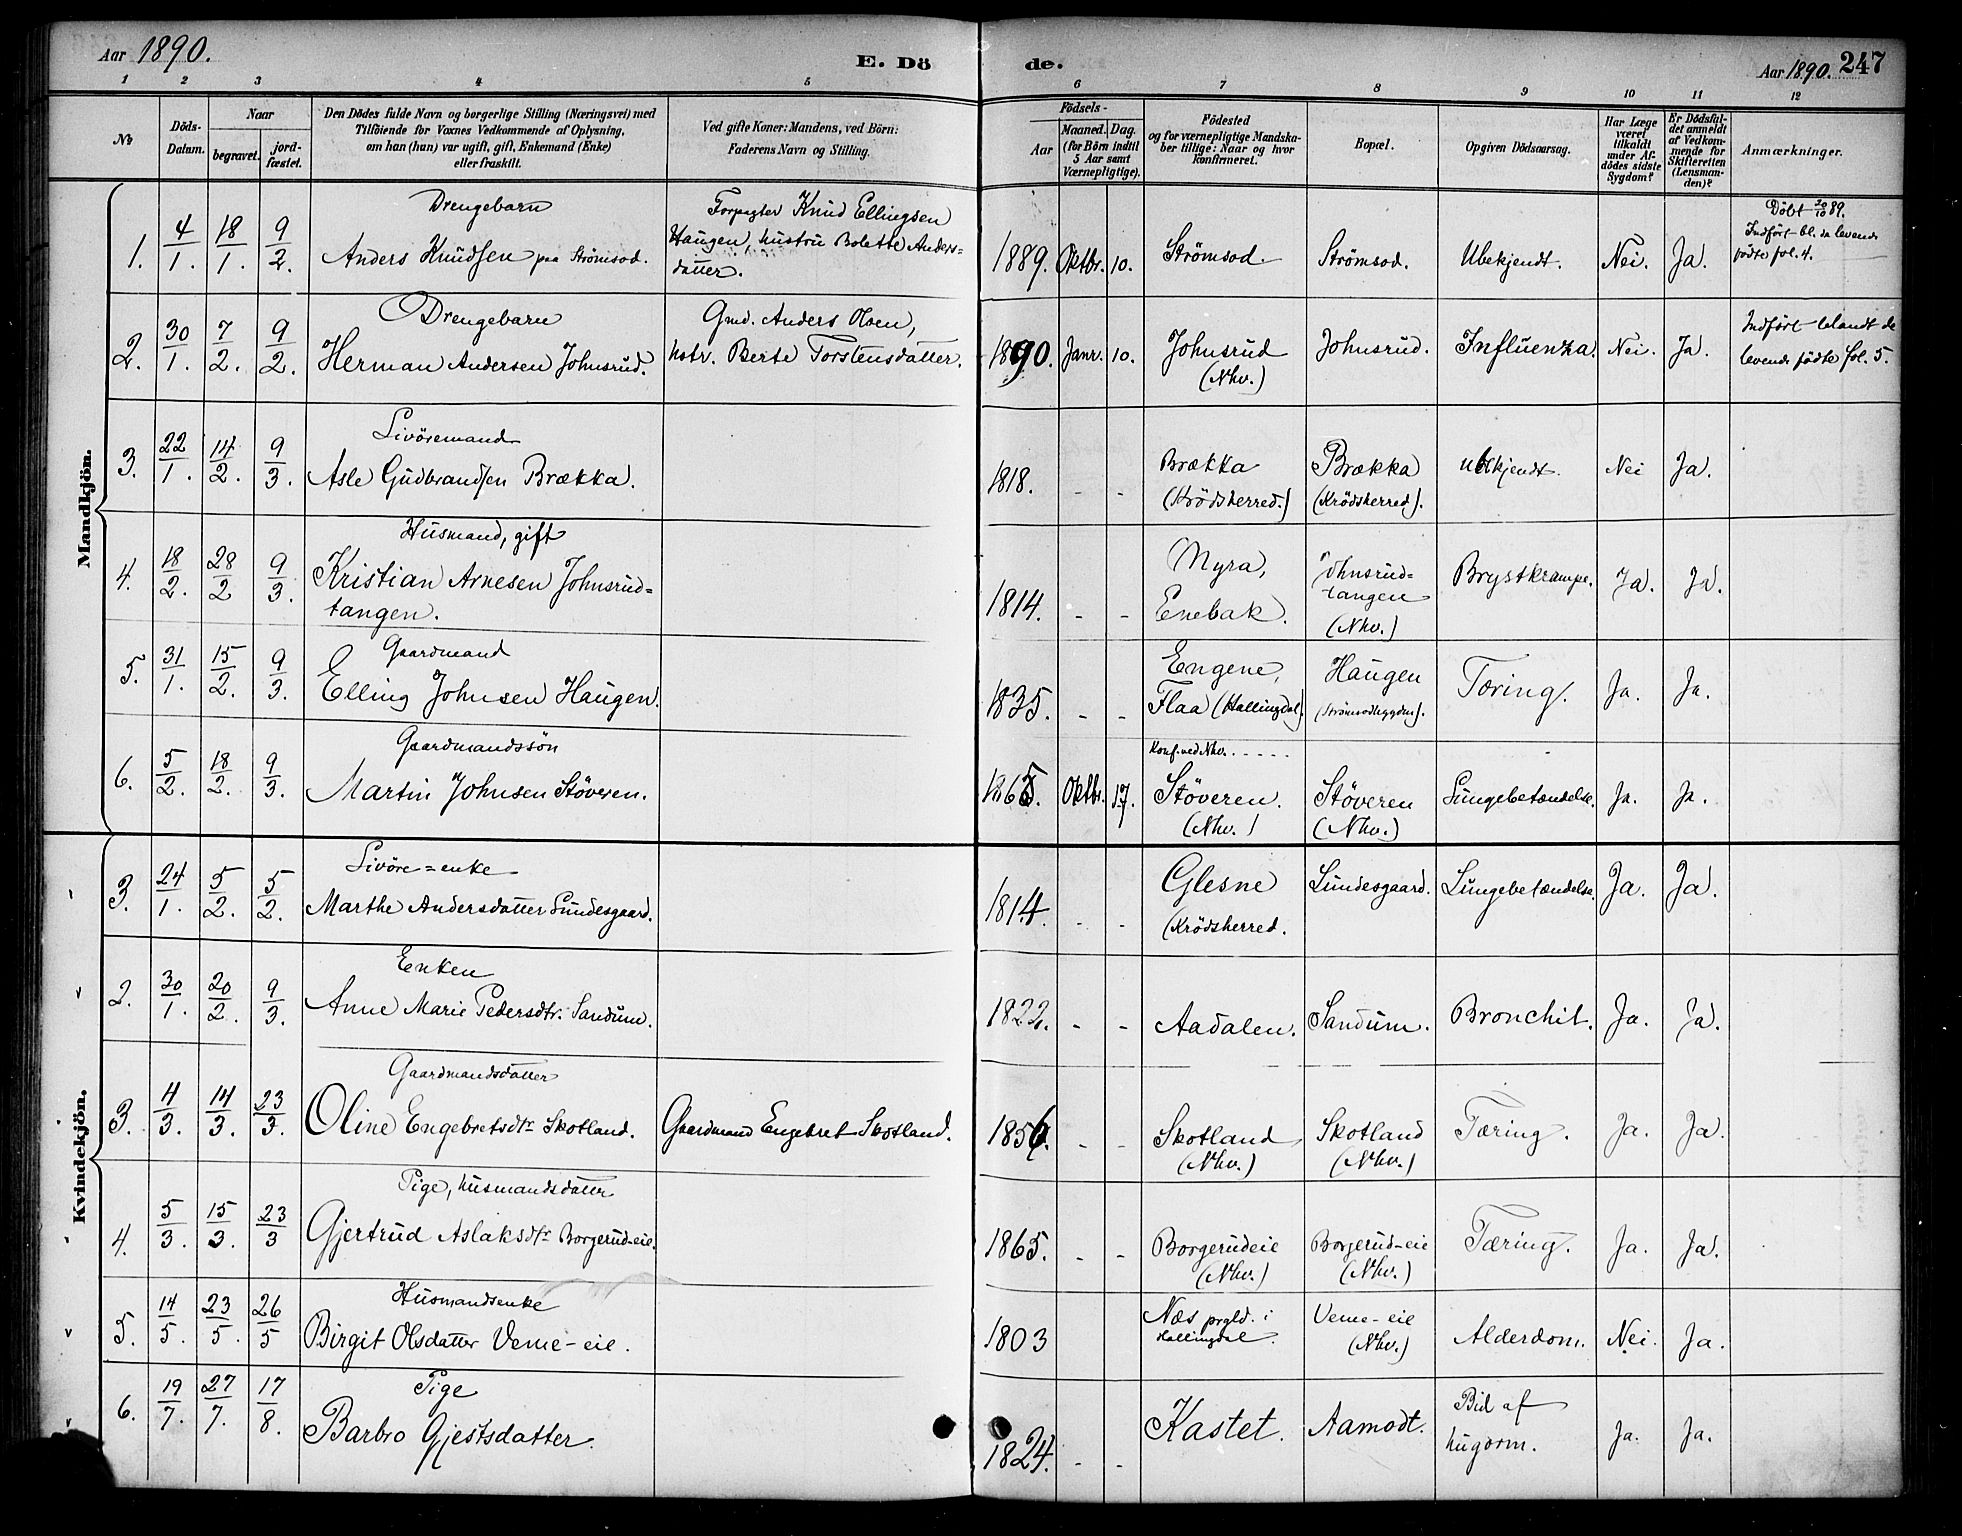 Aar 1890.
E. Dö
de.
Aar 1890. 247
1 2 3 4 5 6 7 8 9 10 11 12
No
Döds-
Datum.
Naar
begravet.
jord-
fæstet.
Den Dödes fulde Navn og borgerlige Stilling (Næringsvei) med
Tilföiende for Voxnes Vedkommende af Oplysning,
om han (hun) var ugift, gift, Enkemand (Enke)
eller fraskilt.
Ved gifte Koner: Mandens, ved Börn:
Faderens Navn og Stilling.
Födsels-
Aar
Maaned. Dag.
(for Börn indtil
5 Aar samt
Værnepligtige).
Födested
og for værnepligtige Mandska-
ber tillige: Naar og hvor
konfirmeret.
Bopæl.
Opgiven Dödsaarsag.
Har Læge
været
tilkaldt
under Af-
dödes sidste
Sygdom?
Er Dödsfal-
det anmeldt
af Vedkom-
mende for
Skifteretten
(Lensman-
den)?
Anmærkninger.
Mandkjön.
1. 4/1. 18/1. 9/2.
Drengebarn
Anders Knudsen paa Strömsod.
Forpagter Knud Ellingsen
Haugen, hustru Bolette Anders=
datter.
1889. Oktbr. 10. Strömsod. Strömsod. Ubekjendt. Nei. Ja.
Döbt 20/10 89.
Indfört bl. de levende
födte fol. 4.
2. 30/1. 7/2. 9/2.
Drengebarn
Herman Andersen Johnsrud.
Gmd. Anders Olsen,
hstr. Berte Torstensdatter.
1890. Janr. 10. Johnsrud
(Nhv.)
Johnsrud. Influenza. Nei. Ja.
Indfört blandt de
levende födte fol. 5.
3. 22/1. 14/2. 9/3.
Livöremand
Asle Gudbrandsen Brækka.
1818. - - Brækka
(Krödsherred.)
Brækka
(Krödsherred).
Ubekjendt. Nei Ja.
4. 18/2. 28/2 9/3.
Husmand, gift
Kristian Arnesen Johnsrud=
tangen.
1814. - - Myra,
Enebak.
Johnsrud=
tangen
(Nhv.)
Brystkrampe. Ja. Ja.
5. 31/1. 15/2. 9/3.
Gaardmand
Elling Johnsen Haugen.
1835. - - Engene,
Flaa (Hallingdal).
Haugen
(Strömsodbygden).
Tæring. Ja. Ja.
6. 5/2. 18/2. 9/3.
Gaardmandssön
Martin Johnsen Stöveren.
1865. Oktbr. 17.
Konf. ved Nhv. . - - - -
Stöveren.
(Nhv.)
Stöveren
(Nhv.)
Lungebetændelse. Ja. Ja.
Kvindekjön.
3. 24/1. 5/2. 5/2.
Livöre=enke
Marthe Andersdatter Lundesgaard.
1814. - - Glesne
(Krödsherred.
Lundesgaard. Lungebetændelse. Ja. Ja.
2. 30/1. 20/2. 9/3.
Enken
Anne Marie Pedersdtr. Sandum.
1822. - - Aadalen. Sandum. Bronchit. Ja. Ja.
3. 4/3. 14/3. 23/3.
Gaardmandsdatter
Oline Engebretsdtr Skotland.
Gaardmand Engebret Skotland.
1856. - - Skotland
(Nhv.)
Skotland
(Nhv.)
Tæring. Ja. Ja.
4. 5/3. 15/3. 23/3
Pige, husmandsdatter
Gjertrud Aslaksdtr Borgerud-eie.
1865. - - Borgerudeie
(Nhv.)
Borgerud-eie
(Nhv.)
Tæring. Ja. Ja.
5. 14/5. 23/5. 26/5
Husmandsenke
Birgit Olsdatter Veme-eie.
1803
Næs prgld. i
Hallingdal.
Veme-eie
(Nhv.)
Alderdom. Nei. Ja.
6. 19/7. 27/7. 17/8.
Pige
Barbro Gjestsdatter.
1824. - - Kastet. Aamodt.
Bid af
hugorm.
Ja. Ja.